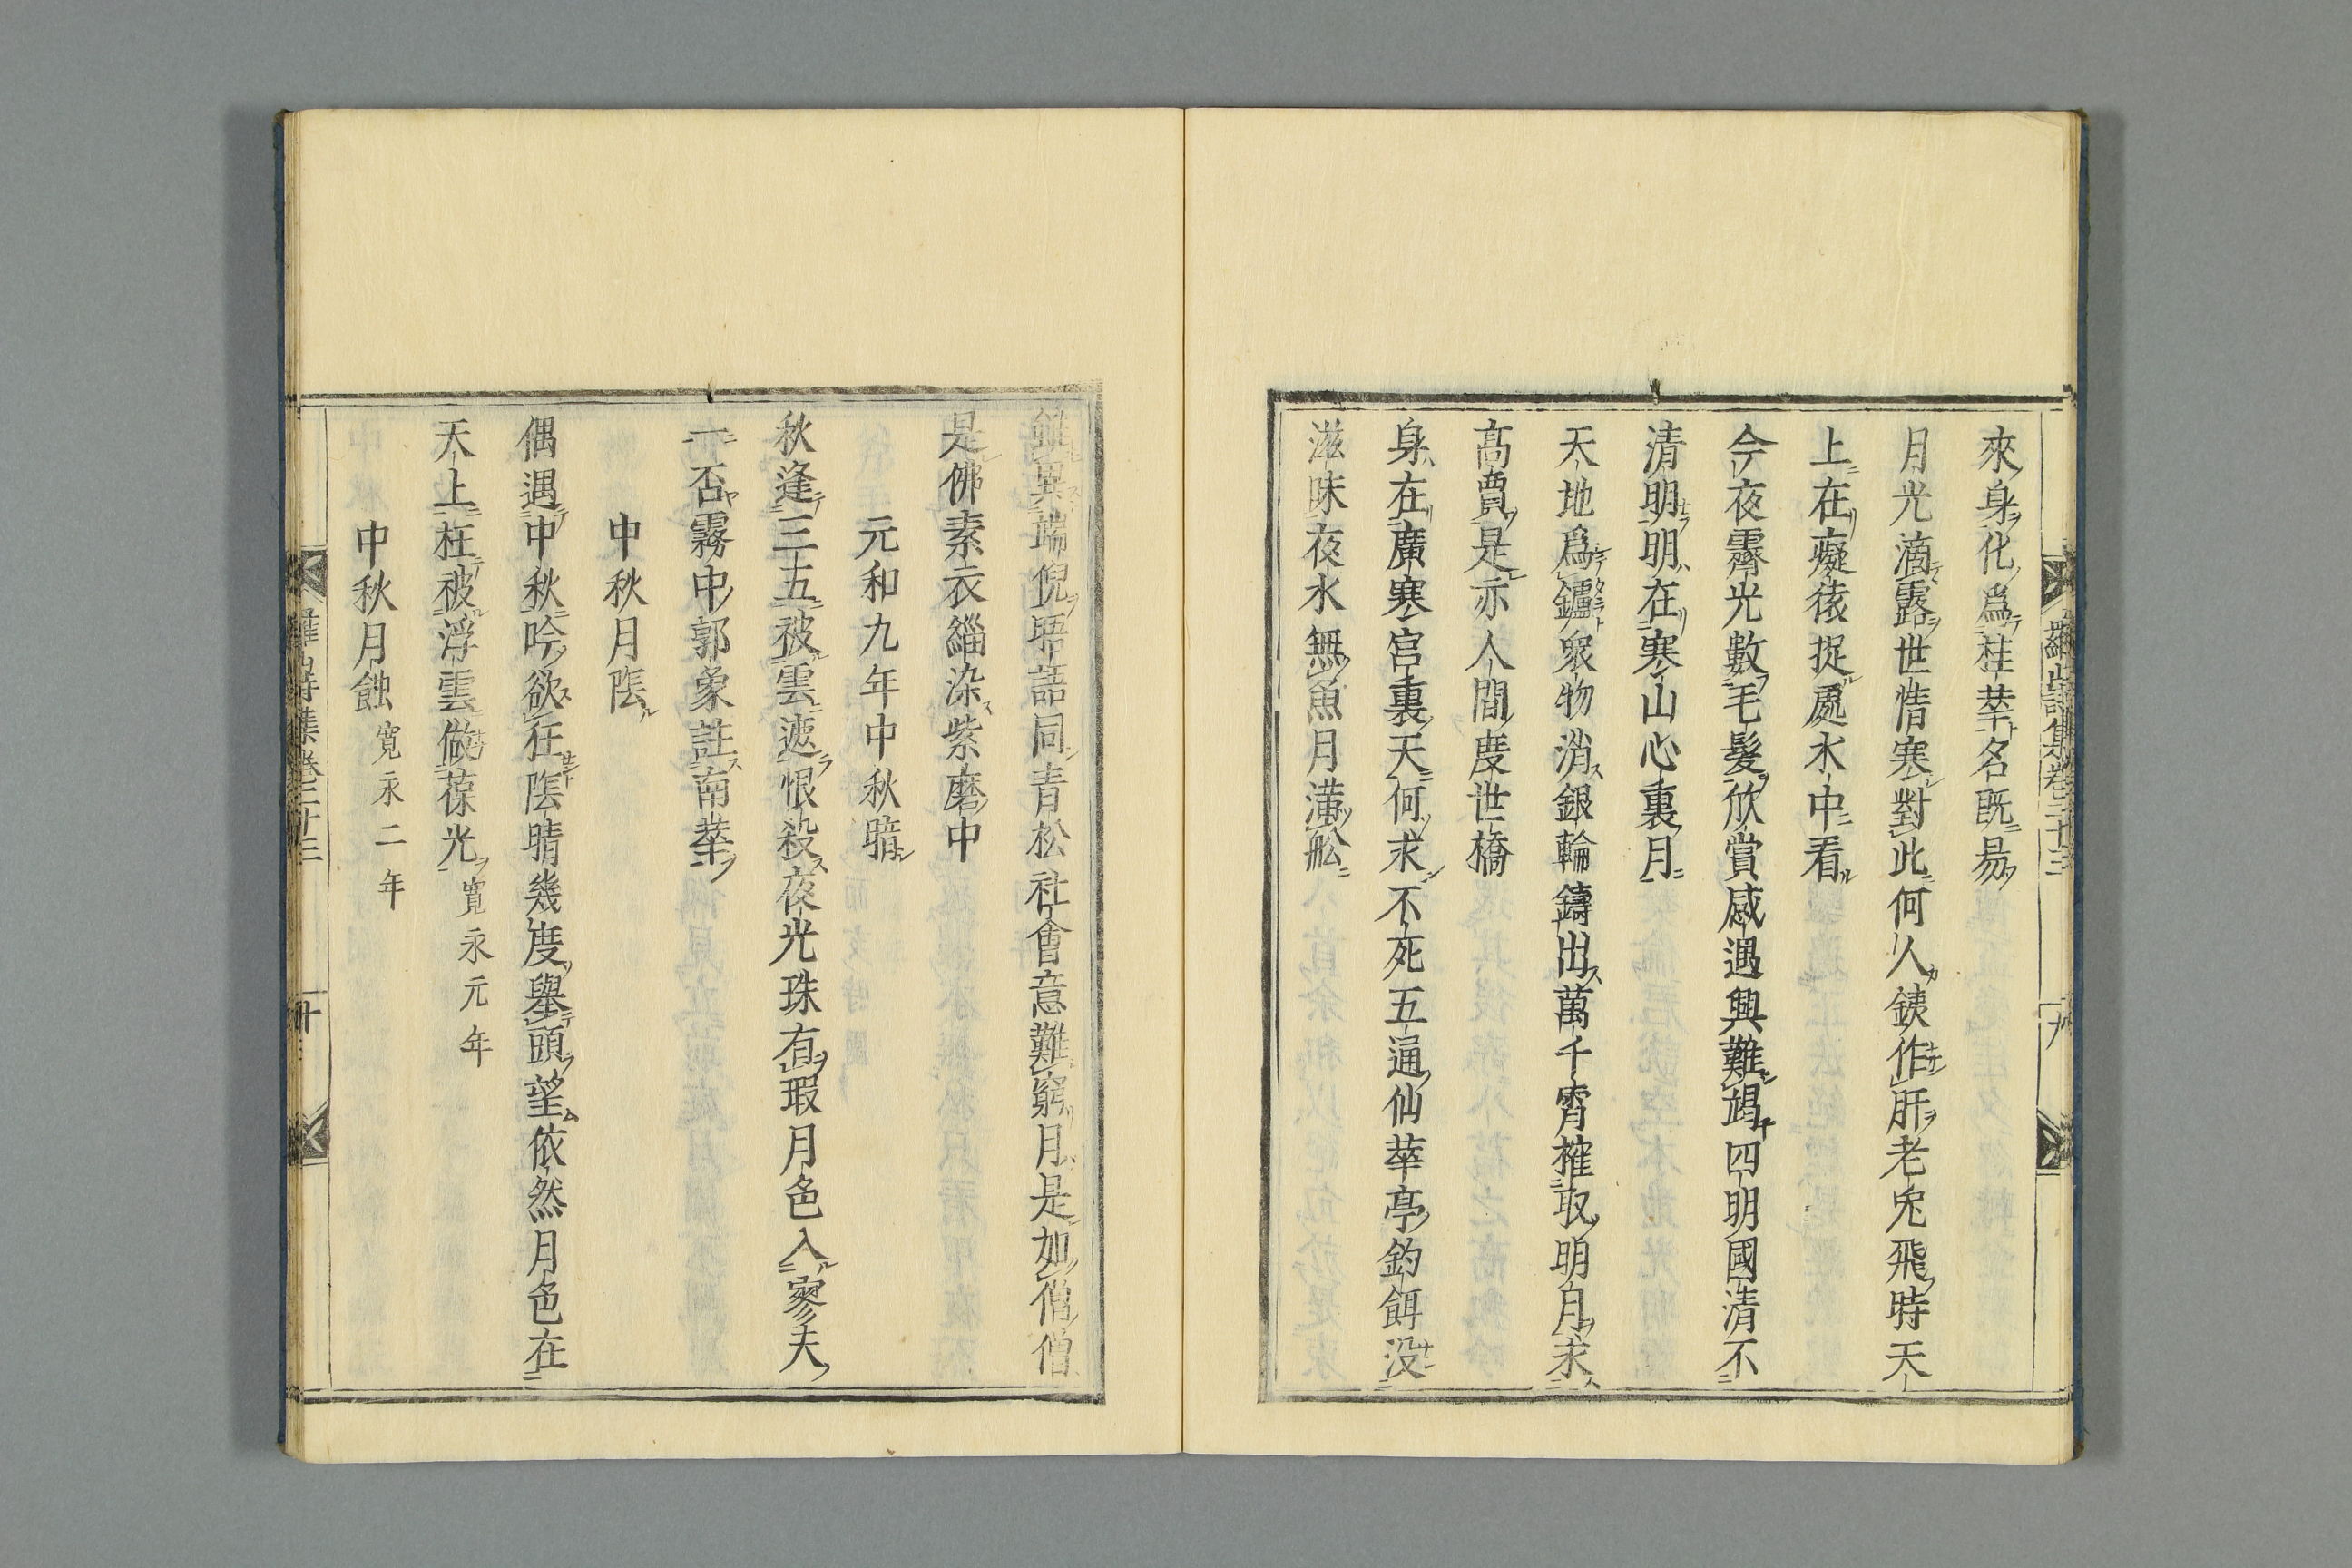 羅山詩集卷三十三
十九
來身化爲桂華名既易
月光滴露世情寒對此何人銕作肝老兔飛時天
上在癡猿捉處水中看
今夜霽光數毛髮欣賞感遇興難竭四明國清不
清明明在寒山心裏月
天地爲鑪衆物消銀輪鑄出萬千霄搉取明月求
高賈是亦人間度世橋
身在廣寒宮裏天何求不死五通仙華亭釣餌没
滋味夜水無魚月滿舩
異端倪晤語同青松社會意難窮月是如僧僧
是佛素衣緇染紫磨中
元和九年中秋暗
秋逢三五被雲遮恨殺夜光珠有瑕月色入寥夫
一否霧中郭象註南華
中秋月陰
偶遇中秋吟欲狂陰晴幾度擧頭望依然月色在
天上枉被浮雲做葆光寛永元年
中秋月蝕寛永二年
羅山詩集卷三十三
二十